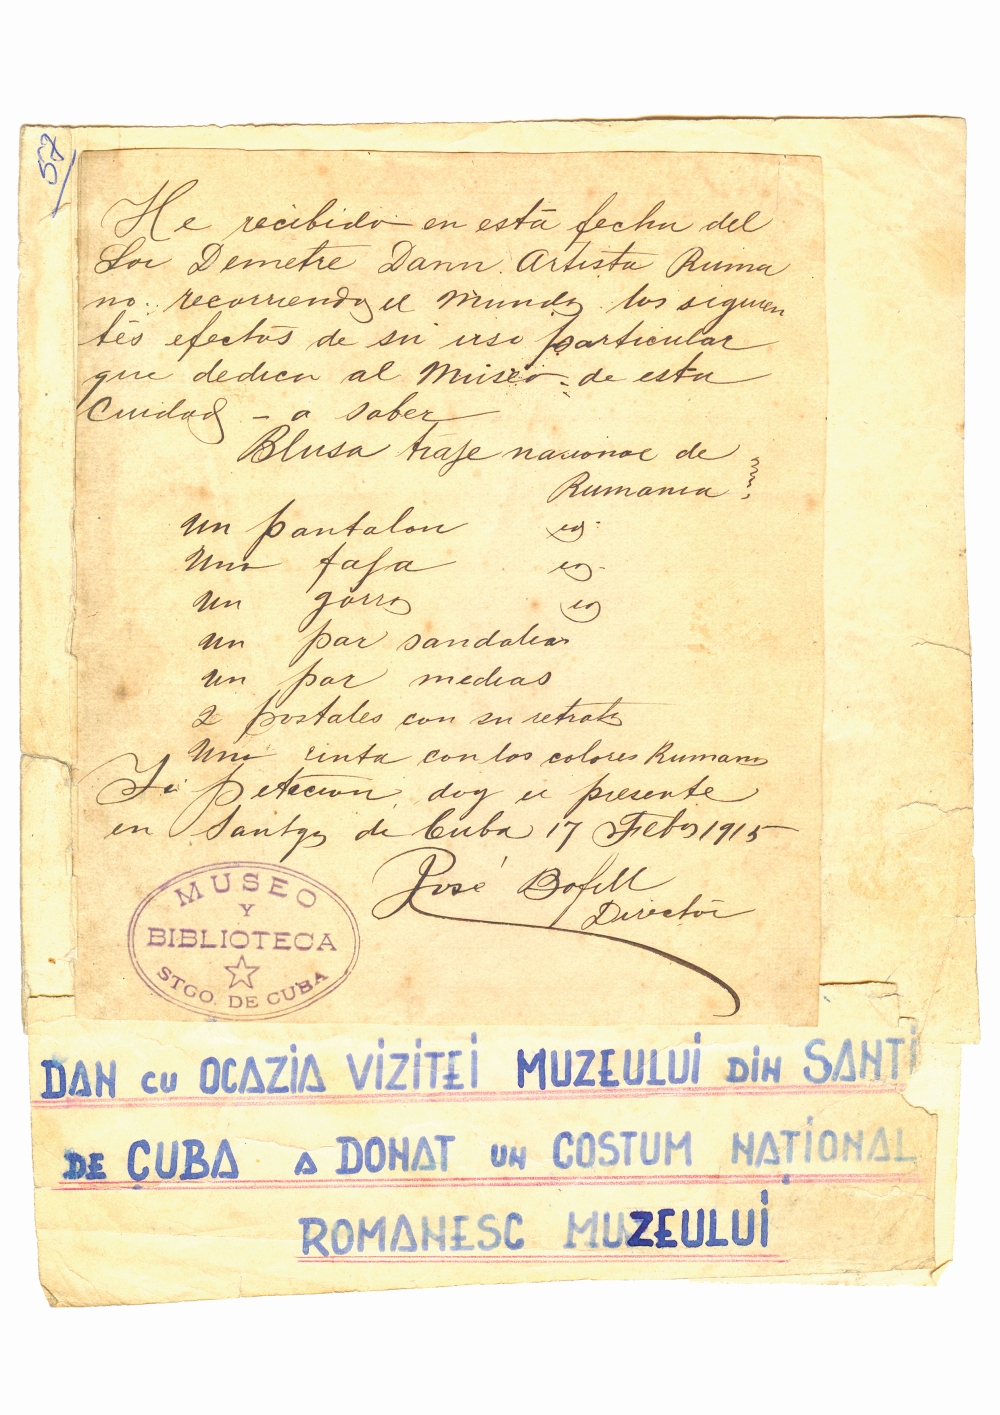 57
He recibido en esta fecha del
Sor Demetre Dann Artista Ruma
no. recorriendo el mundo los siguien
tes efectos de su uso particular
que dedica al Museo de esta
Cuidad - a saber
Blusa traje nacional de
Rumania
un pantalon id
Una faja id
un gorro id
un par sandalias
un par medias
2 postales con su retrato
Una cinta con los colores Rumano
peticion doy el presente
en Santgo de Cuba 17 Febo 1915
José Bofill
Director
MUSEO
Y
BIBLIOTECA
STGO. DE CUBA
DAN CU OCAZIA VIZITEI MUZEULUI DIN SANTI
DE CUBA A DONAT UN COSTUM NAȚIONAL
ROMANESC MUZEULUI